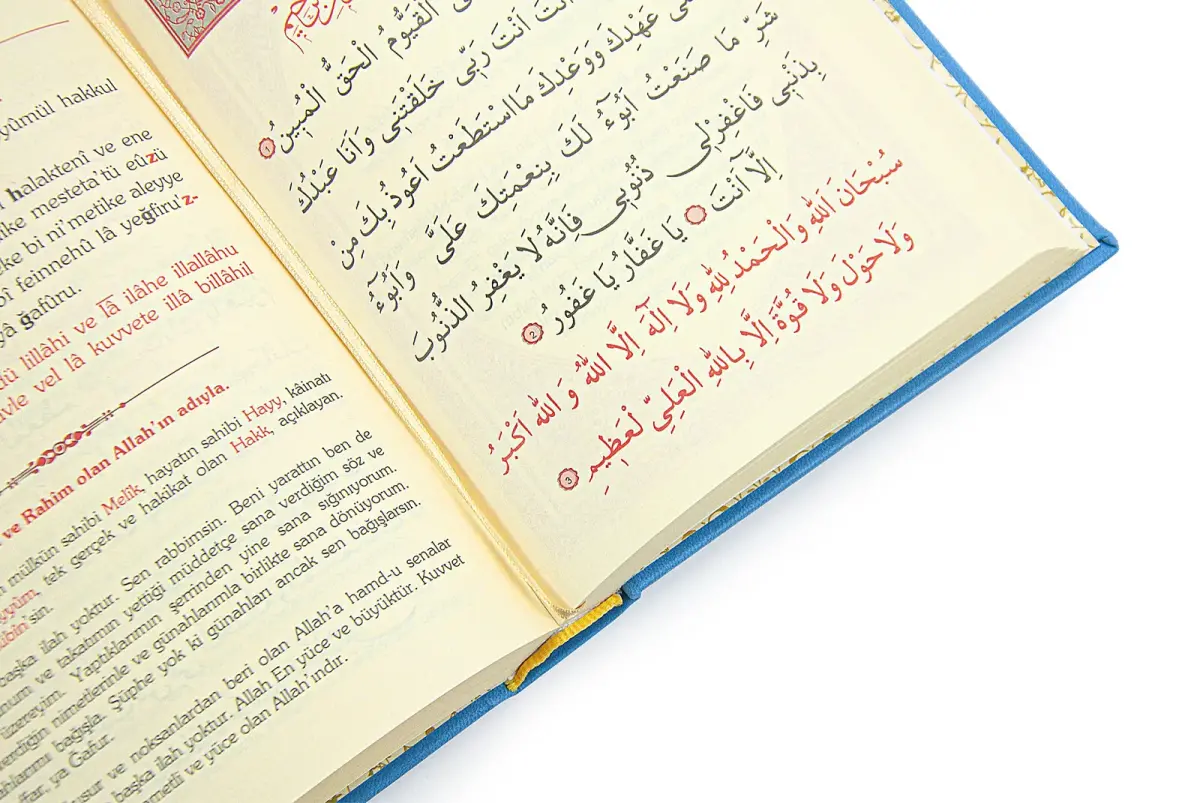 yûmül hakkul
halaktenî ve ene
ike mesteta'tü eûzü
eke bi ni'metike aleyye
bî feinnehû lâ yeğfiru'z-
yâ ğafûru.
dü lillâhi ve lâ ilâhe illallâhu
avle vel lâ kuvvete illâ billâhil
ve Rahim olan Allah'ın adıyla.
mülkün sahibi Melîk, hayatın sahibi Hayy, kâinatı
yyûm, tek gerçek ve hakikat olan Hakk, açıklayan.
übîn'sin.
başka ilah yoktur. Sen rabbimsin. Beni yarattın ben de
ve takatımın yettiği müddetçe sana verdiğim söz ve
üzereyim. Yaptıklarımın şerrinden yine sana sığınıyorum.
verdiğin nimetlerinle ve günahlarımla birlikte sana dönüyorum.
bağışla. Şüphe yok ki günahları ancak sen bağışlarsın.
ffar, ya Gafur.
kusur ve noksanlardan beri olan Allah'a hamd-u senalar
başka ilah yoktur. Allah En yüce ve büyüktür. Kuvvet
ve yüce olan Allah'ındır.
الْقَيُّومُ الْحَقُّ الْمُبِينُ ١
اَنْتَ اَنْتَ رَبِّى خَلَقْتَنِى وَاَنَا عَبْدُكَ
عَهْدِكَ وَوَعْدِكَ مَا اسْتَطَعْتُ اَعُوذُ بِكَ مِنْ
شَرِّ مَا صَنَعْتُ اَبُوٓءُ لَكَ بِنِعْمَتِكَ عَلَىَّ وَاَبُوٓءُ
بِذَنْبِى فَاغْفِرْلِى ذُنُوبِى فَاِنَّهُ لَا يَغْفِرُ الذُّنُوبَ
اِلَّا اَنْتَ يَا غَفَّارُ يَا غَفُورُ ٢
سُبْحَانَ اللّٰهِ وَالْحَمْدُ لِلّٰهِ وَلَا اِلٰهَ اِلَّا اللّٰهُ وَ اللّٰهُ اَكْبَرُ
وَلَا حَوْلَ وَلَا قُوَّةَ اِلَّا بِاللّٰهِ الْعَلِىِّ لْعَظِيمِ ٣